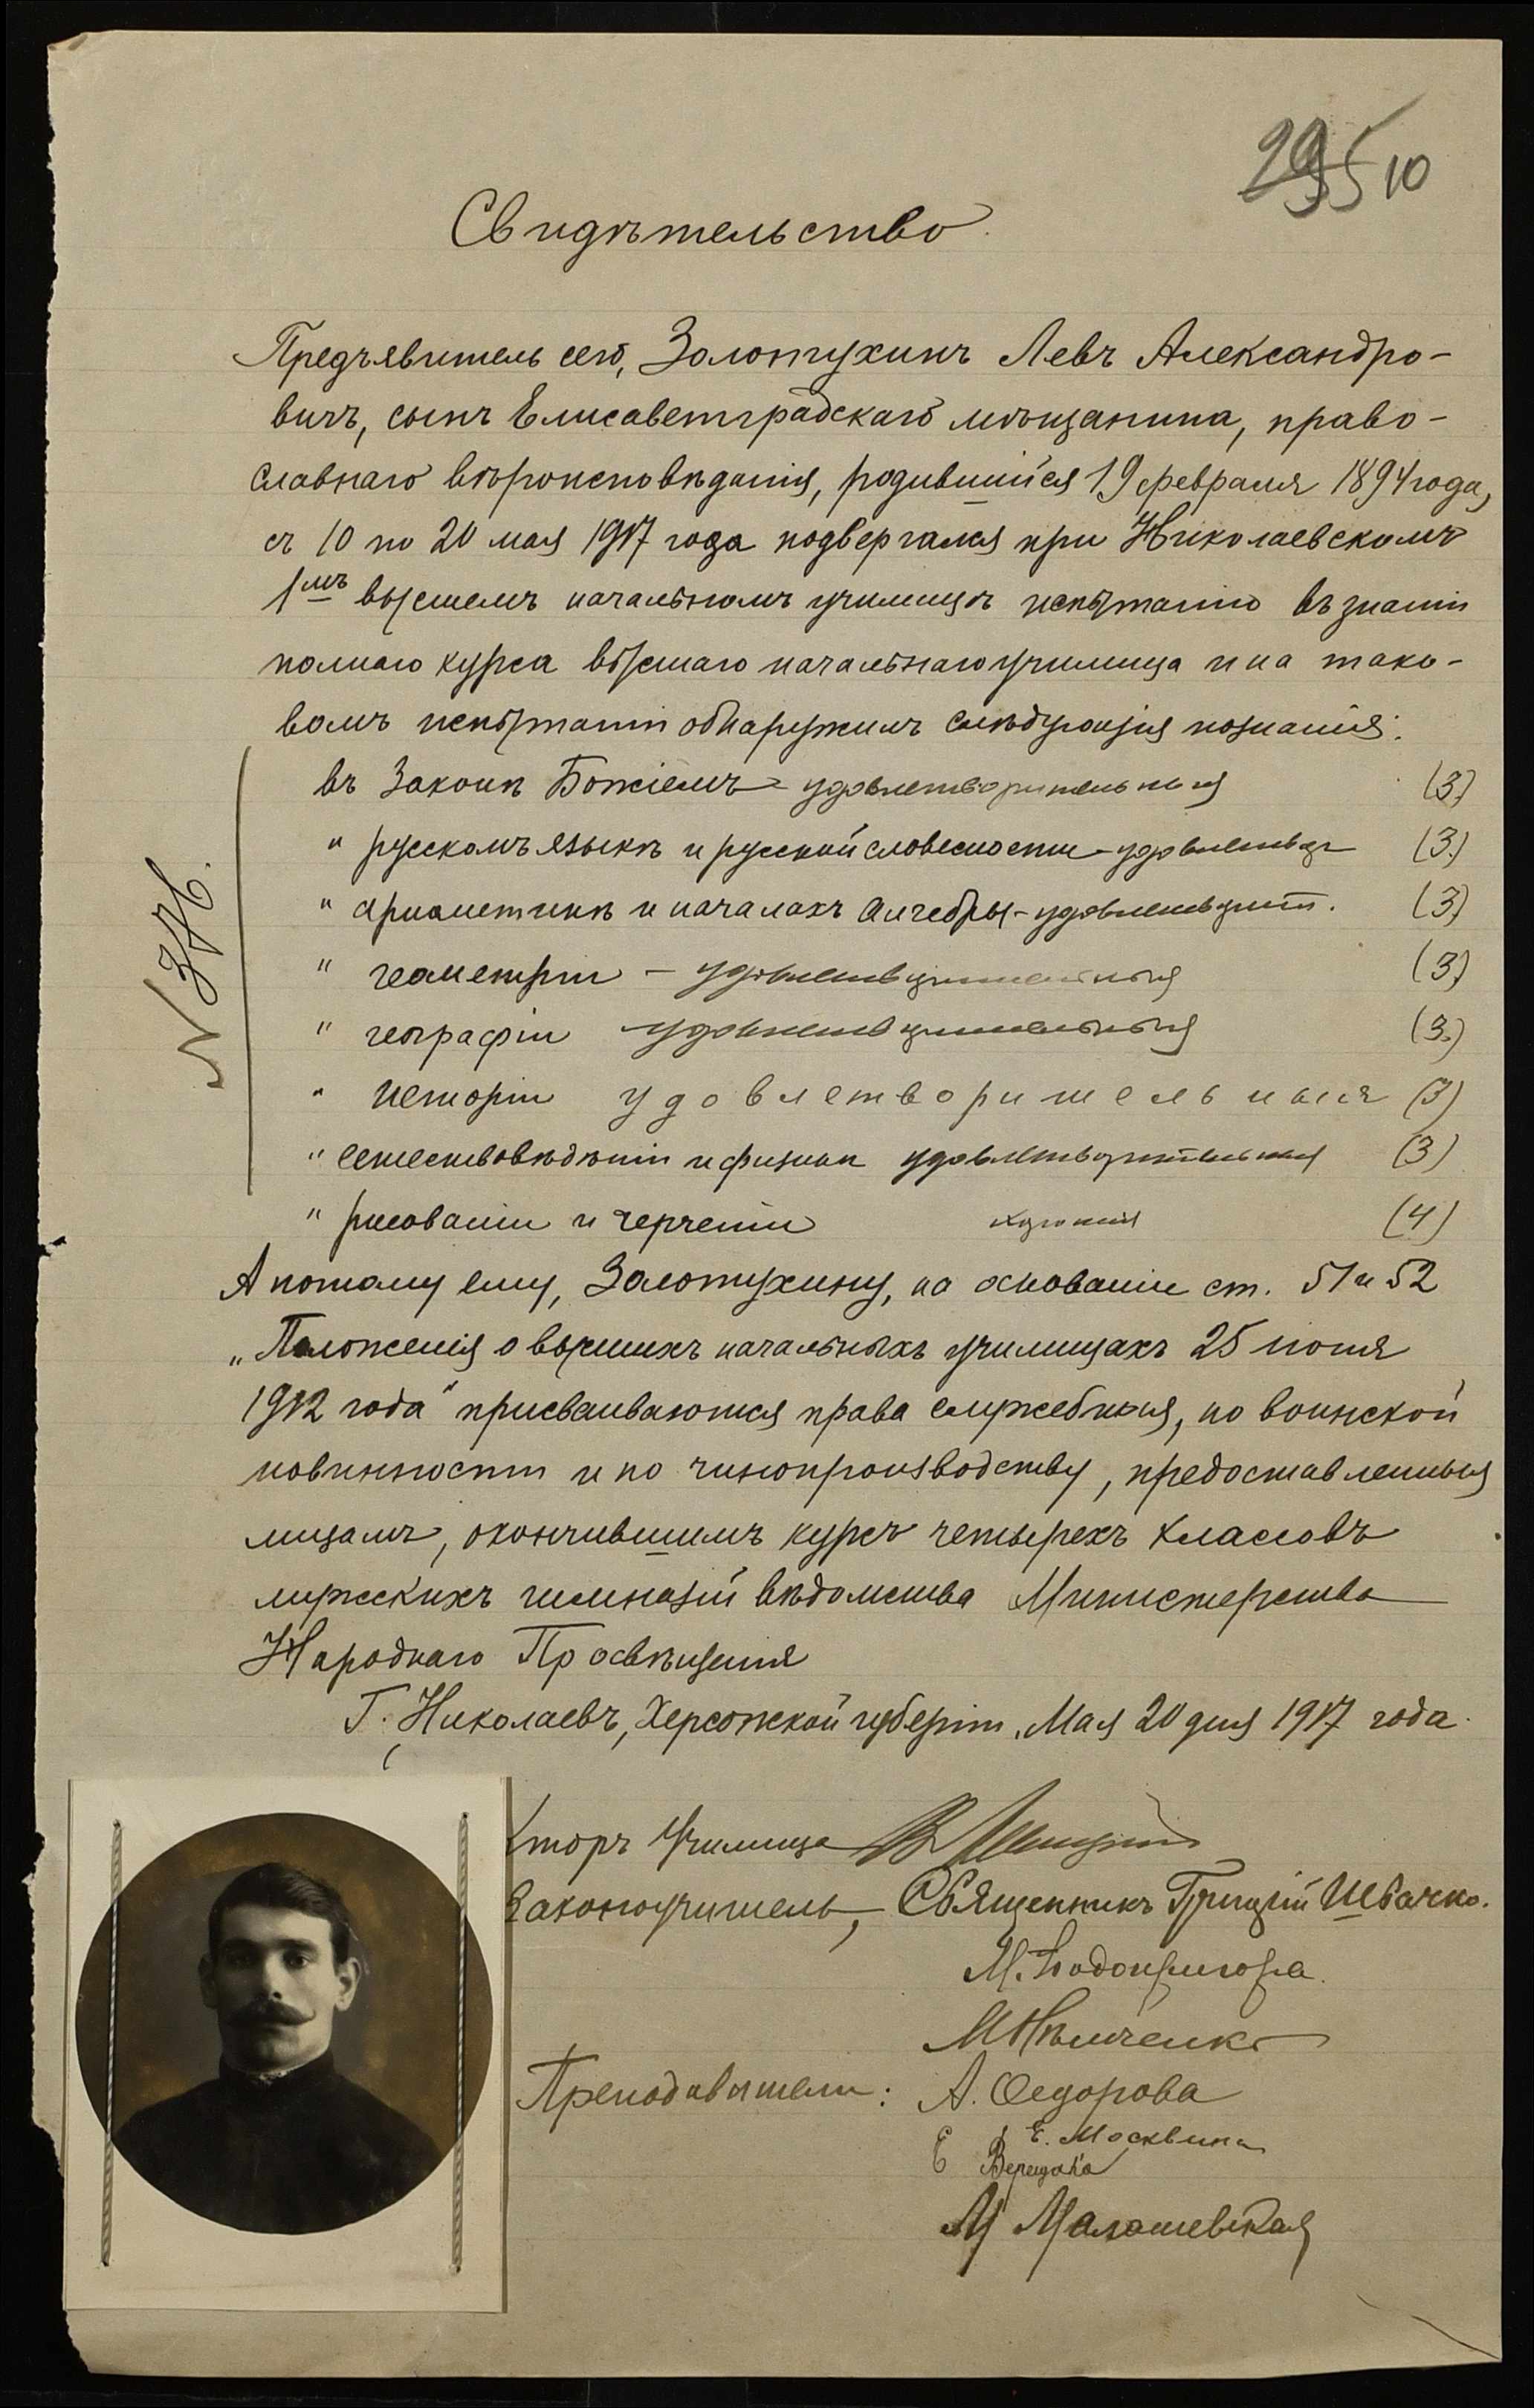 295 10
Свидѣтельство.
Предъявитель сего, Золотухинъ Левъ Александро-
вичъ, сынъ Елисаветградскаго мѣщанина, право-
славнаго вѣроисповѣданія, родившійся 19 февраля 1894 года,
съ 10 по 20 мая 1917 года подвергался при Николаевскомъ
1мъ высшемъ начальномъ училищѣ испытанію въ знаніи
полнаго курса высшаго начальнаго училища и на тако-
вомъ испытаніи обнаружилъ слѣдующія познанія:
въ Законѣ Божіемъ – удовлетворительныя (3)
" русскомъ языкѣ и русской словесности – удовлетвор (3.)
" ариѳметикѣ и началахъ алгебры – удовлетворит. (3)
" геометріи – удовлетворительныя (3)
" географіи удовлетворительныя (3.)
" исторіи удовлетворительныя (3)
" естествовѣдѣніи и физикѣ удовлетворительныя (3)
" рисованіи и черченіи хорошія (4)
N
А потому ему, Золотухину, на основаніи ст. 51 и 52
„Положенія о высшихъ начальныхъ училищахъ 25 іюня
1912 года" присваиваются права служебныя, по воинской
повинности и по чинопроизводству, предоставленныя
лицамъ, окончившимъ курсъ четырехъ классовъ
мужскихъ гимназій вѣдомства Министерства
Народнаго Просвѣщенія
Г. Николаевъ, Херсонской губерніи, Мая 20 дня 1917 года.
кторъ Училища
Законоучитель, Священникъ Григорій Швачко.
М. Подопригора.
М Нѣмченко
Преподаватели: А. Ѳедорова
Е. Москвина
Е Верещака
М Малашевская